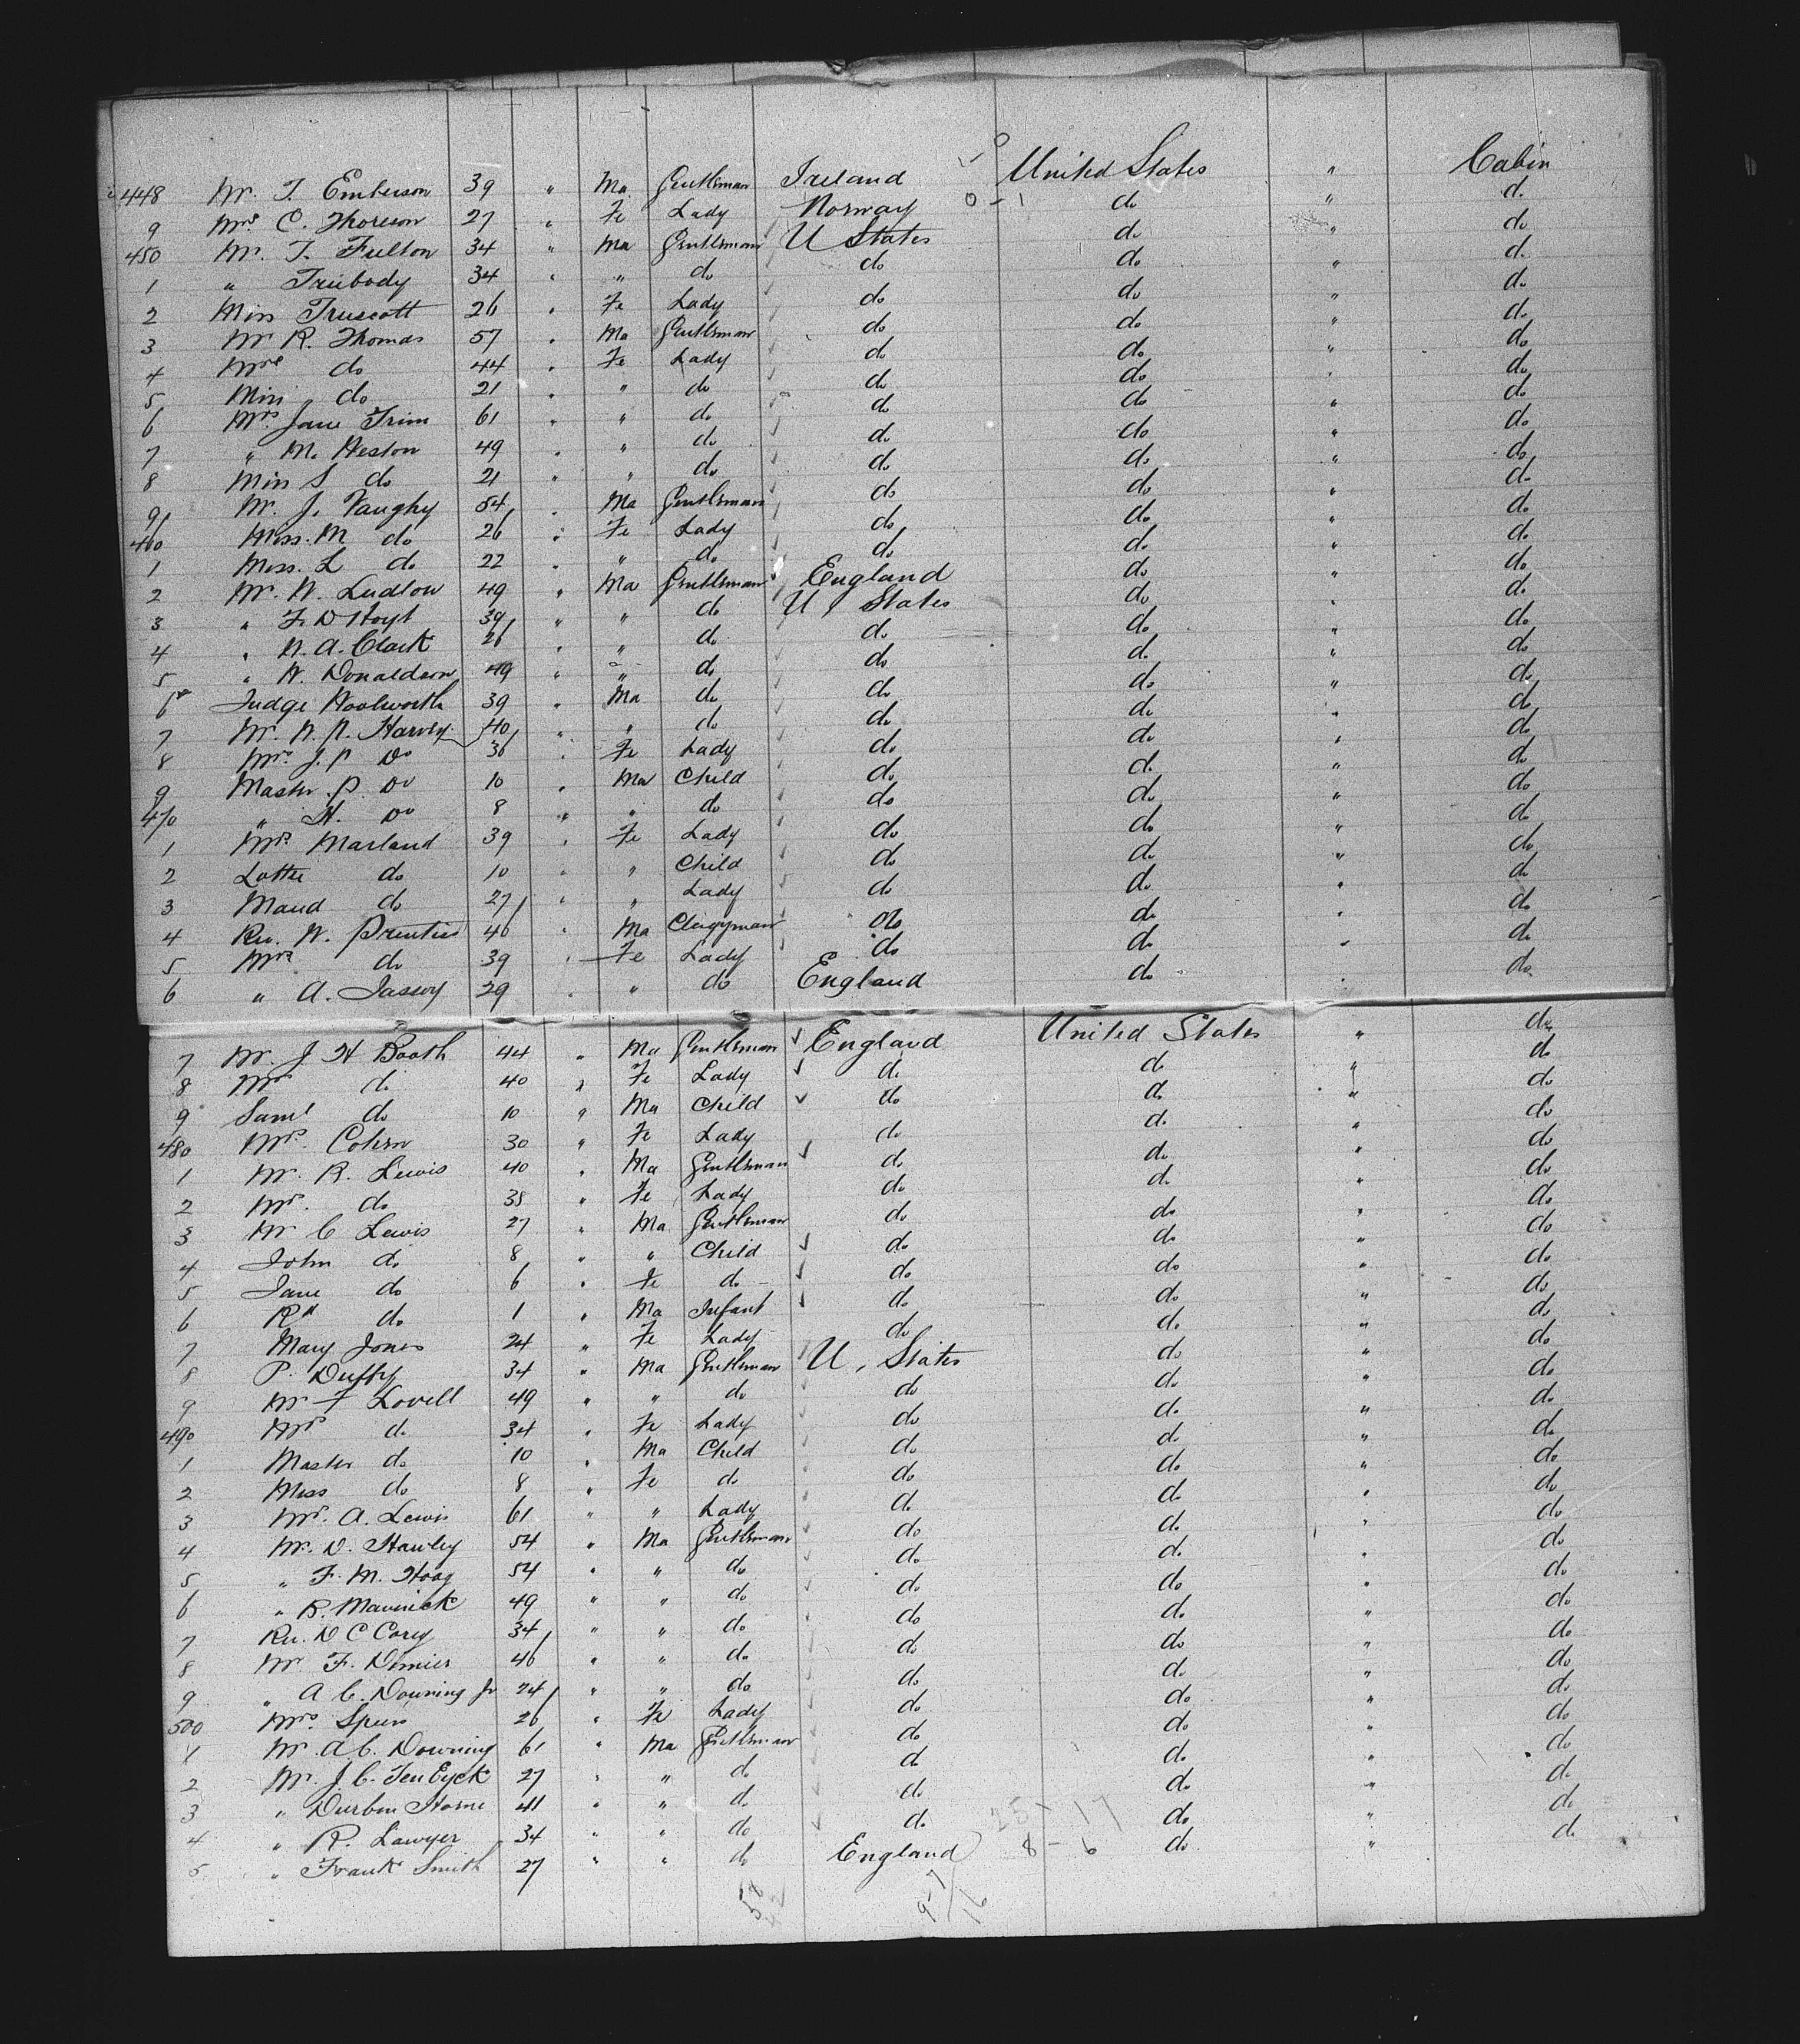 448 Mr. T. Emberson 39 " Ma Gentleman Ireland United States " Cabin
9 Mrs. C. Thoreson 27 " Fe Lady Norway 0 - 1 do " do
450 Mr. T. Fulton 34 " Ma Gentleman U States do " do
1 " Truebody 34 " " do do do " do
2 Miss Truscott 26 " Fe Lady do do " do
3 Mr R. Thomas 57 " Ma Gentleman do do " do
4 Mrs do 44 " Fe Lady do do " do
5 Miss do 21 " " do do do " do
6 Mrs. Jane Trim 61 " " do do do " do
7 " M. Weston 49 " " do do do " do
8 Miss S do 21 " " do do do " do
9 Mr. J. Vaughy 54 " Ma Gentleman do do " do
460 Miss. M do 26 " Fe Lady do do " do
1 Miss. L do 22 " " do do do " do
2 Mr. W. Ludlow 49 " Ma Gentleman England do " do
3 " F. D Hoyt 39 " " do U, States do " do
4 " N. A. Clark 26 " " do do do " do
5 " W. Donaldson 49 " " do do do " do
6 Judge Woolworth 39 " Ma do do do " do
7 Mr. W. N. Harvey 40 " " do do do " do
8 Mrs. J. P Do 36 " Fe Lady do do " do
9 Master. P. Do 10 " Ma Child do do " do
470 " H. Do 8 " " do do do " do
1 Mrs. Marland 39 " Fe Lady do do " do
2 Lottie do 10 " " Child do do " do
3 Maud do 27 " " Lady do do " do
4 Rev. W. Prentiss 46 " Ma Clergyman do do " do
5 Mrs do 39 " Fe Lady do do " do
6 " A. Jassoy 29 " " do England do " do
7 Mr. J. H Booth 44 " Ma Gentleman England United States " do
8 Mrs do 40 " Fe Lady do do " do
9 Saml do 10 " Ma Child do do " do
480 Mrs. Cohen 30 " Fe Lady do do " do
1 Mr. R. Lewis 40 " Ma Gentleman do do " do
2 Mrs. do 38 " Fe Lady do do " do
3 Mr C Lewis 27 " Ma Gentleman do do " do
4 John do 8 " " Child do do " do
5 Jane do 6 " Fe do do do " do
6 Rd do 1 " Ma Infant do do " do
7 Mary Jones 24 " Fe Lady do do " do
8 P. Duffy 34 " Ma Gentleman U, States do " do
9 Mr F Lovell 49 " " do do do " do
490 Mrs do 34 " Fe Lady do do " do
1 Master do 10 " Ma Child do do " do
2 Miss do 8 " Fe do do do " do
3 Mrs. A. Lewis 61 " " Lady do do " do
4 Mr. D. Hawley 54 " Ma Gentleman do do " do
5 " F. M. Hoag 54 " " do do do " do
6 " B. Maverick 49 " " do do do " do
7 Rev. D C Corey 34 " " do do do " do
8 Mr. F. Demier 46 " " do do do " do
9 " A C. Downing Jr 24 " " do do do " do
500 Mrs. Speer 26 " Fe Lady do do " do
1 Mr A C. Downing 61 " Ma Gentleman do do " do
2 Mr. J. C. Ten Eyck 27 " " do do do " do
3 " Durbin Horne 41 " " do do do " do
4 " R. Lawyer 34 " " do do 25 - 17 do " do
5 " Frank Smith 27 " " do England 8 - 6 do " do
58 9-7
42 16